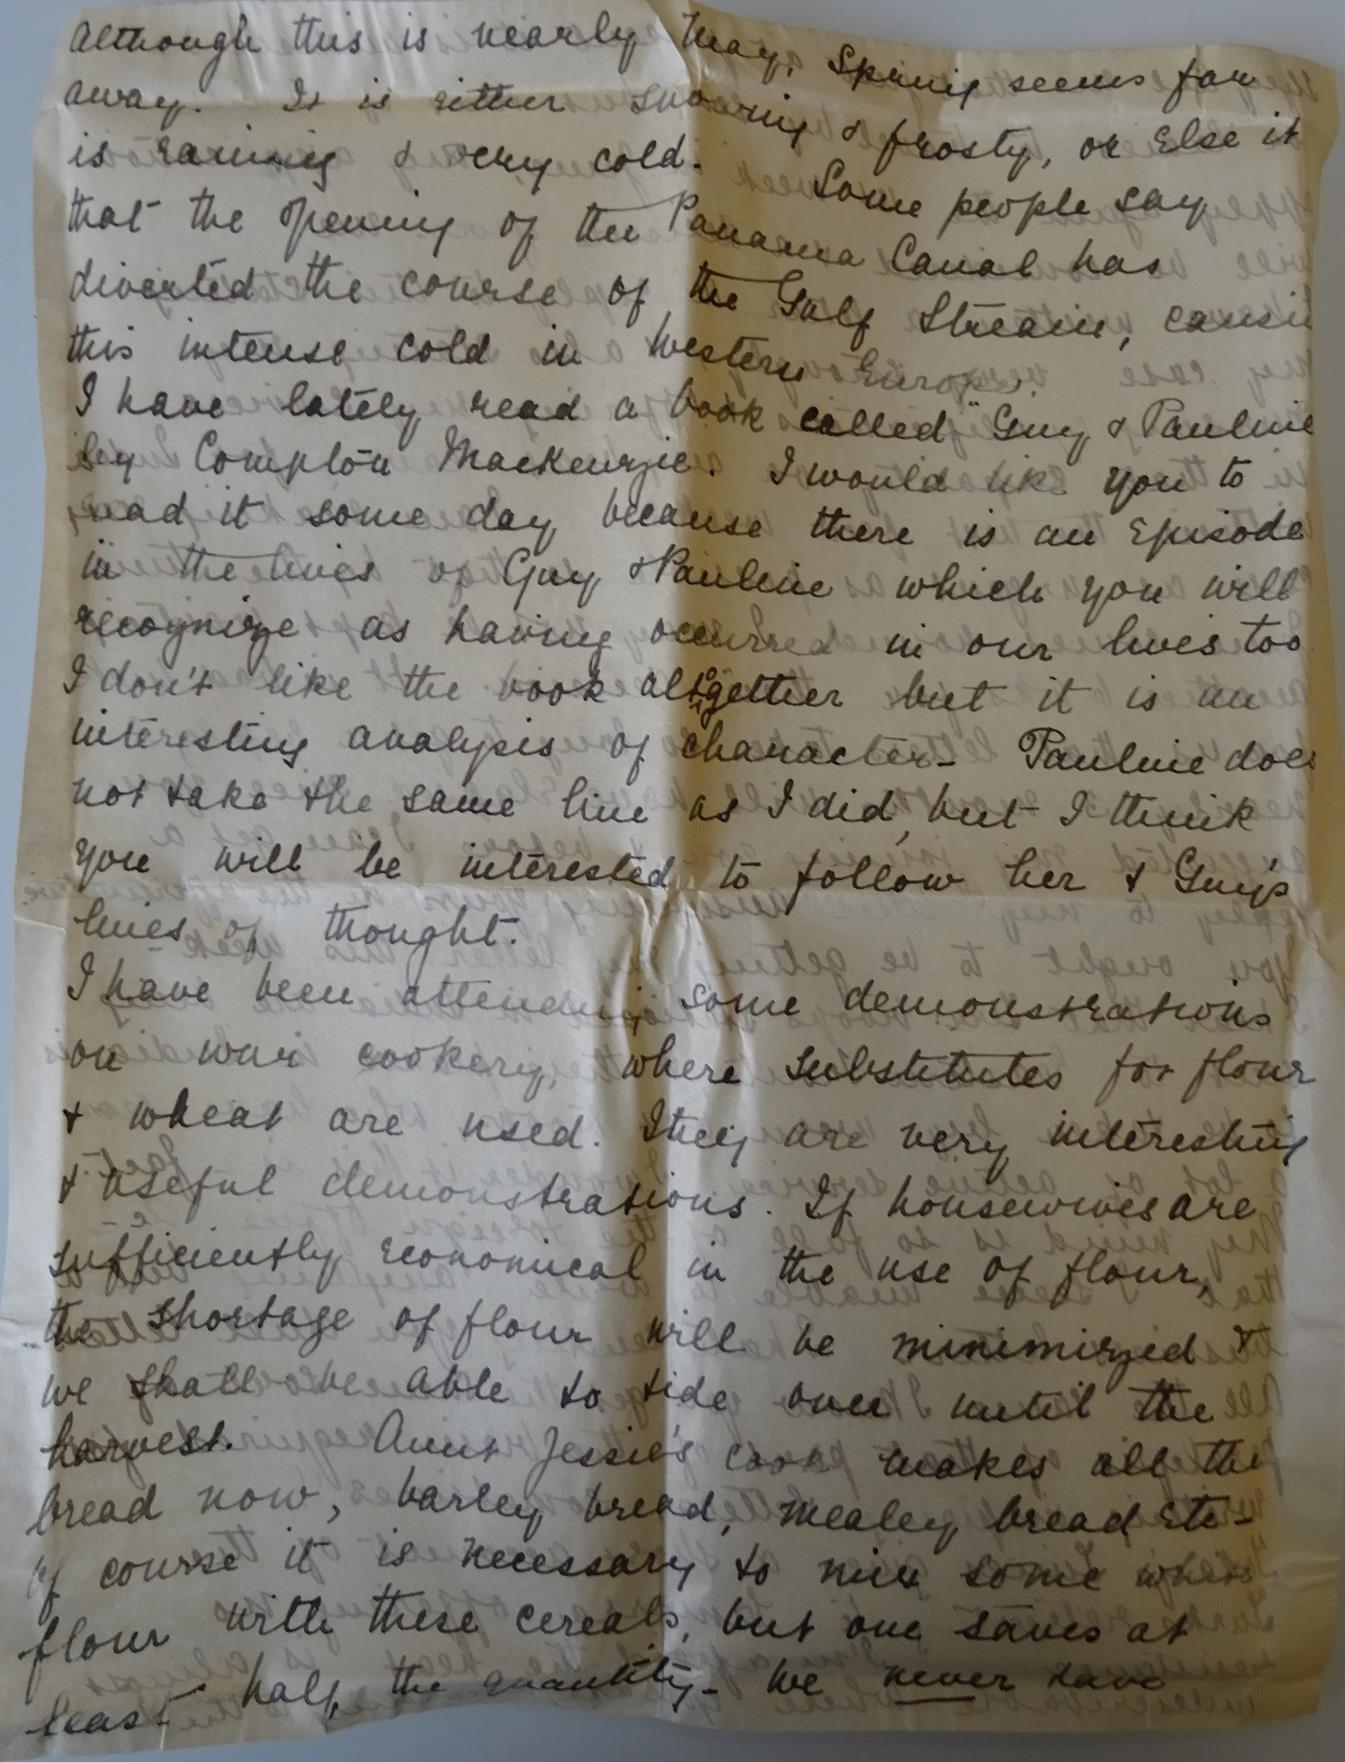 Although this is nearly May, Spring seems far
away. It is either snowing & frosty, or Else it
is raining & very cold. Some people say
that the opening of the Panama Canal has
diverted the course of the Gulf Stream, causi
this intense cold in Western Europe.
I have lately read a book called "Guy & Pauline
by Compton MacKenzie. I would like you to
read it some day because there is an Episode
in the lives of Guy & Pauline which you will
recognize as having occurred in our lives too
I don't like the book altogether but it is an
interesting analysis of character - Pauline does
not take the same line as I did, but I think
you will be interested to follow her & Guy's
lines of thought.
I have been attending some demonstrations
on war cookery, where substitutes for flour
& wheat are used. They are very interesting
& useful demonstrations. If housewives are
sufficiently economical in the use of flour,
the shortage of flour will be minimized &
we shall be able to tide over until the
harvest. Aunt Jessie's cook makes all the
bread now, barley bread, mealey bread Etc -
of course it is necessary to mix some white
flour with these cereals, but one saves at
least half the quantity - We never have